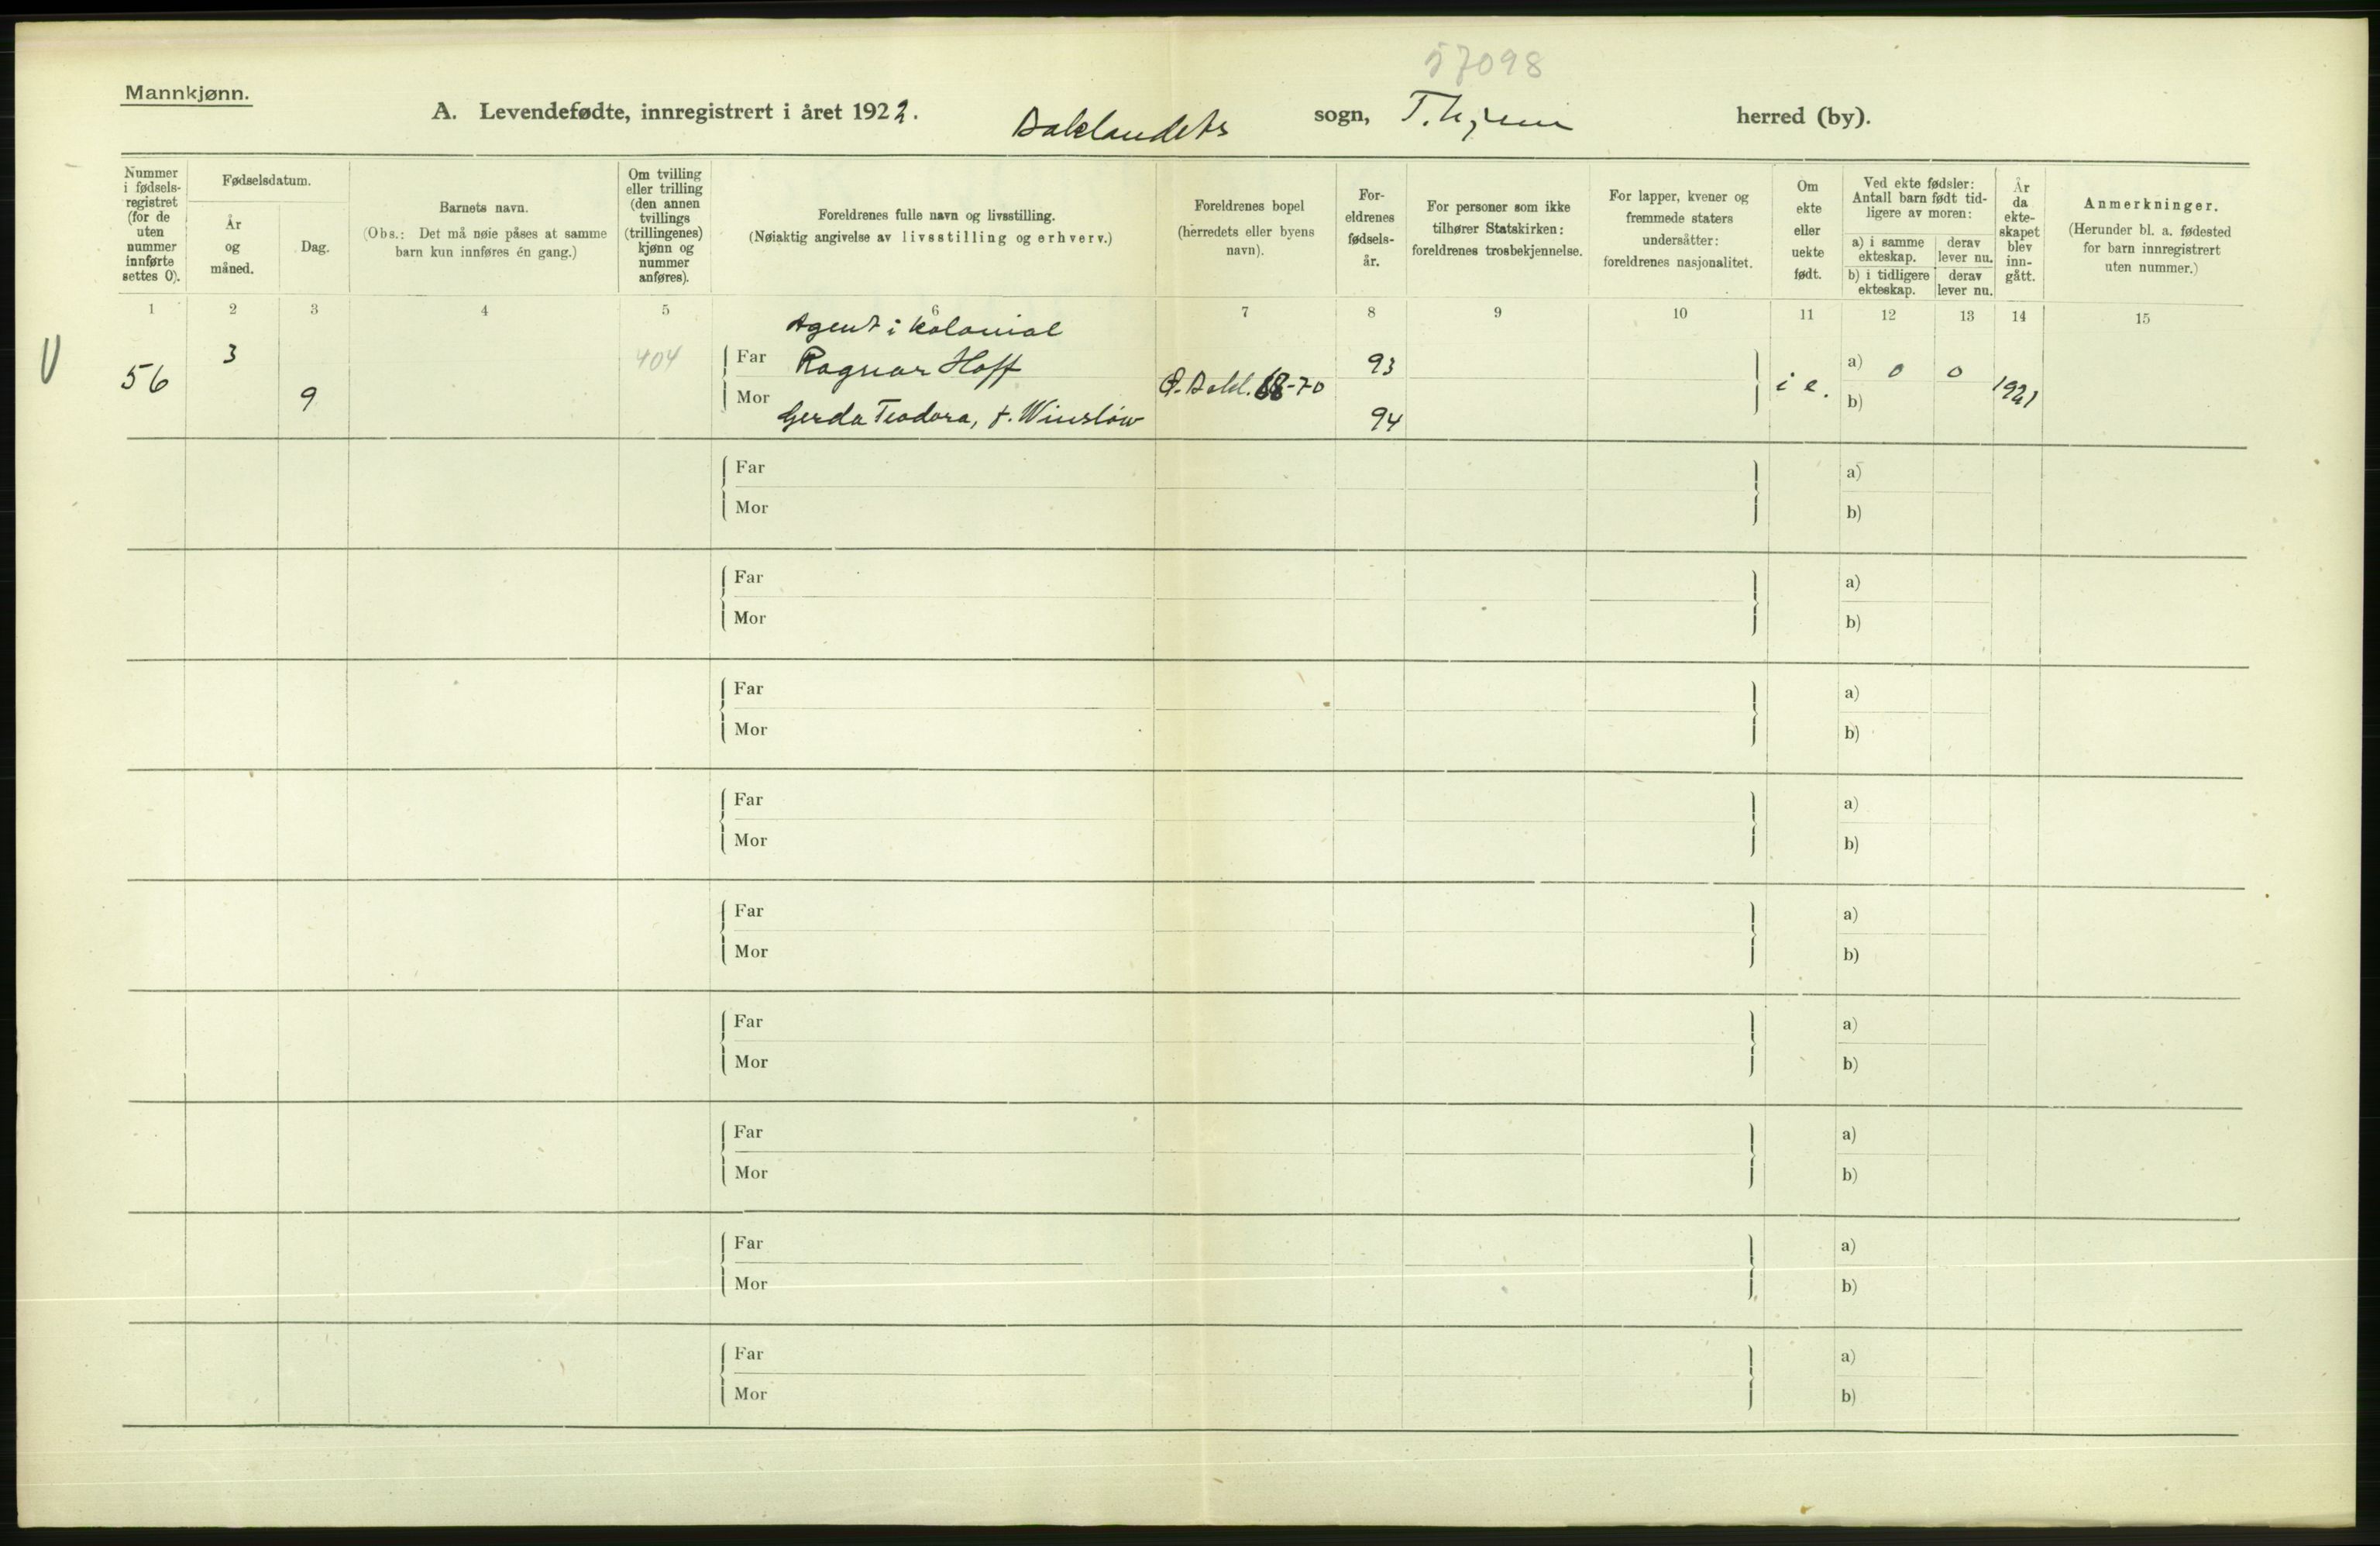 57098
Mannkjønn.
A. Levendefødte, innregistrert i året 1922. Baklandets sogn, T.hjem herred (by).
Nummer i fødsels-registret (for de uten nummer innførte settes 0).
Fødselsdatum.
År og måned.
Dag.
Barnets navn.
(Obs.: Det må nøie påses at samme barn kun innføres én gang.)
Om tvilling eller trilling (den annen tvillings (trillingenes) kjønn og nummer anføres).
Foreldrenes fulle navn og livsstilling.
(Nøiaktig angivelse av livsstilling og erhverv.)
Foreldrenes bopel (herredets eller byens navn).
For-eldrenes fødsels-år.
For personer som ikke tilhører Statskirken: foreldrenes trosbekjennelse.
For lapper, kvener og fremmede staters undersåtter: foreldrenes nasjonalitet.
Om ekte eller uekte født.
Ved ekte fødsler: Antall barn født tid-ligere av moren:
a) i samme ekteskap.
derav lever nu.
b) i tidligere ekteskap.
derav lever nu.
År da ekte-skapet blev inn-gått.
Anmerkninger.
(Herunder bl. a. fødested for barn innregistrert uten nummer.)
1 2 3 4 5 6 7 8 9 10 11 12 13 14 15
Agent i kolonial
56 3 9 404 Far Ragnar Hoff Ø. Bakl. 68-70 93 i e. a) 0 0 1921
Mor Gerda Teodora, f. Winslöw 94 b)
Far a)
Mor b)
Far a)
Mor b)
Far a)
Mor b)
Far a)
Mor b)
Far a)
Mor b)
Far a)
Mor b)
Far a)
Mor b)
Far a)
Mor b)
Far a)
Mor b)